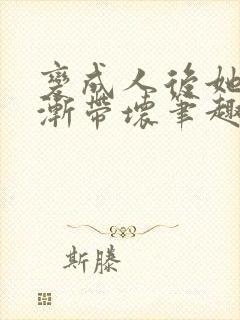 變成人後她
漸帶壞筆趣
斯滕